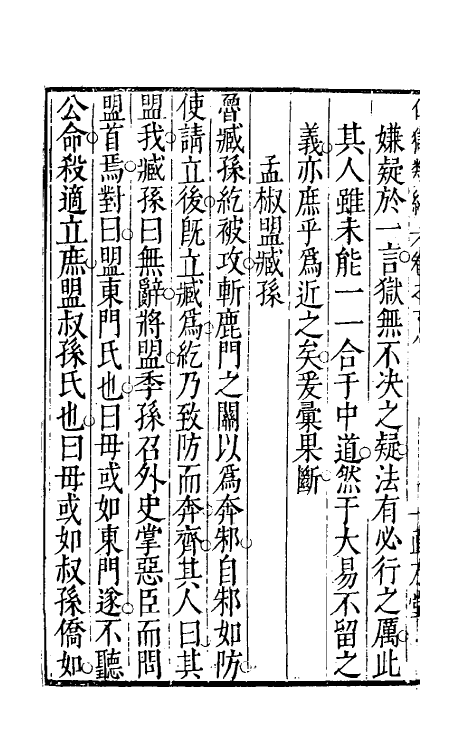 嫌疑於一言獄無不决之疑法有必行之厲此
其人雖未能一一合于中道然于大易不留之
義亦庶乎爲近之矣爰彙果斷
孟椒盟臧孫
魯臧孫紇被攻斬鹿門之關以爲奔邾自邾如防
使請立後旣立臧爲紇乃致防而奔齊其人曰其
盟我臧孫曰無辭將盟季孫召外史掌惡臣而問
盟首焉對曰盟東門氏也曰毋或如東門遂不聽
公命殺適立庶盟叔孫氏也曰毋或如叔孫僑如